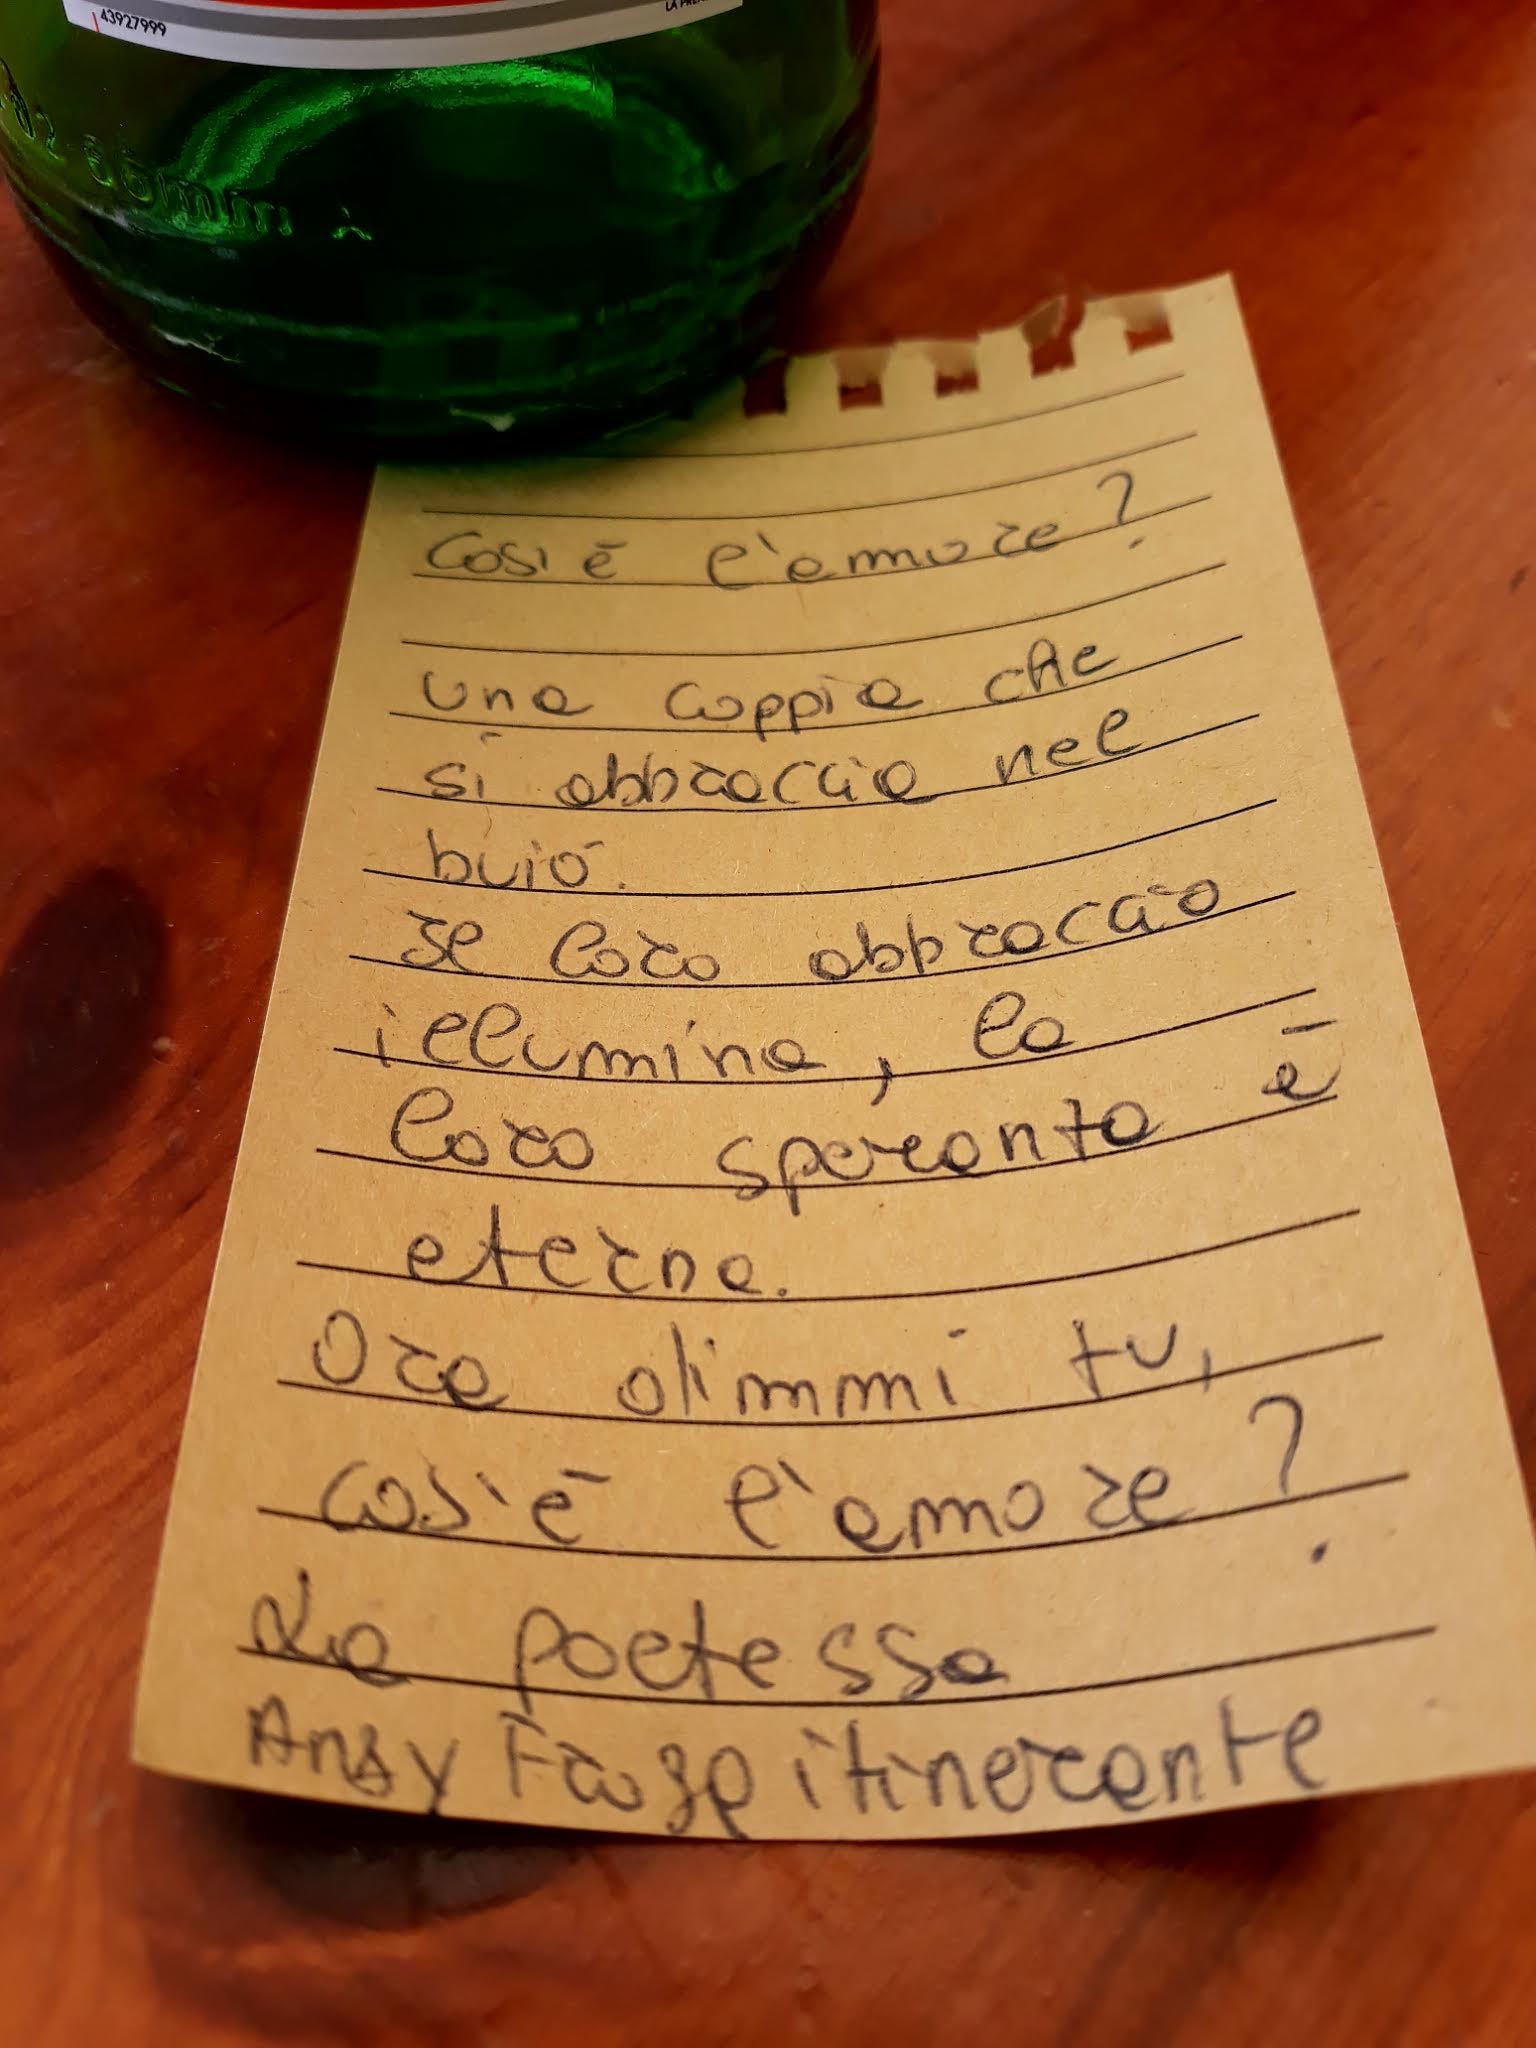 43927999
LA PREM
66mm
Cosi è l'amore?
una coppia che
si abbraccia nel
buio.
Se loro abbraccio
illumina, la
loro speranta è
eterna.
Ora dimmi tu,
cos'è l'amore?
La poetessa
Ansy itinerante